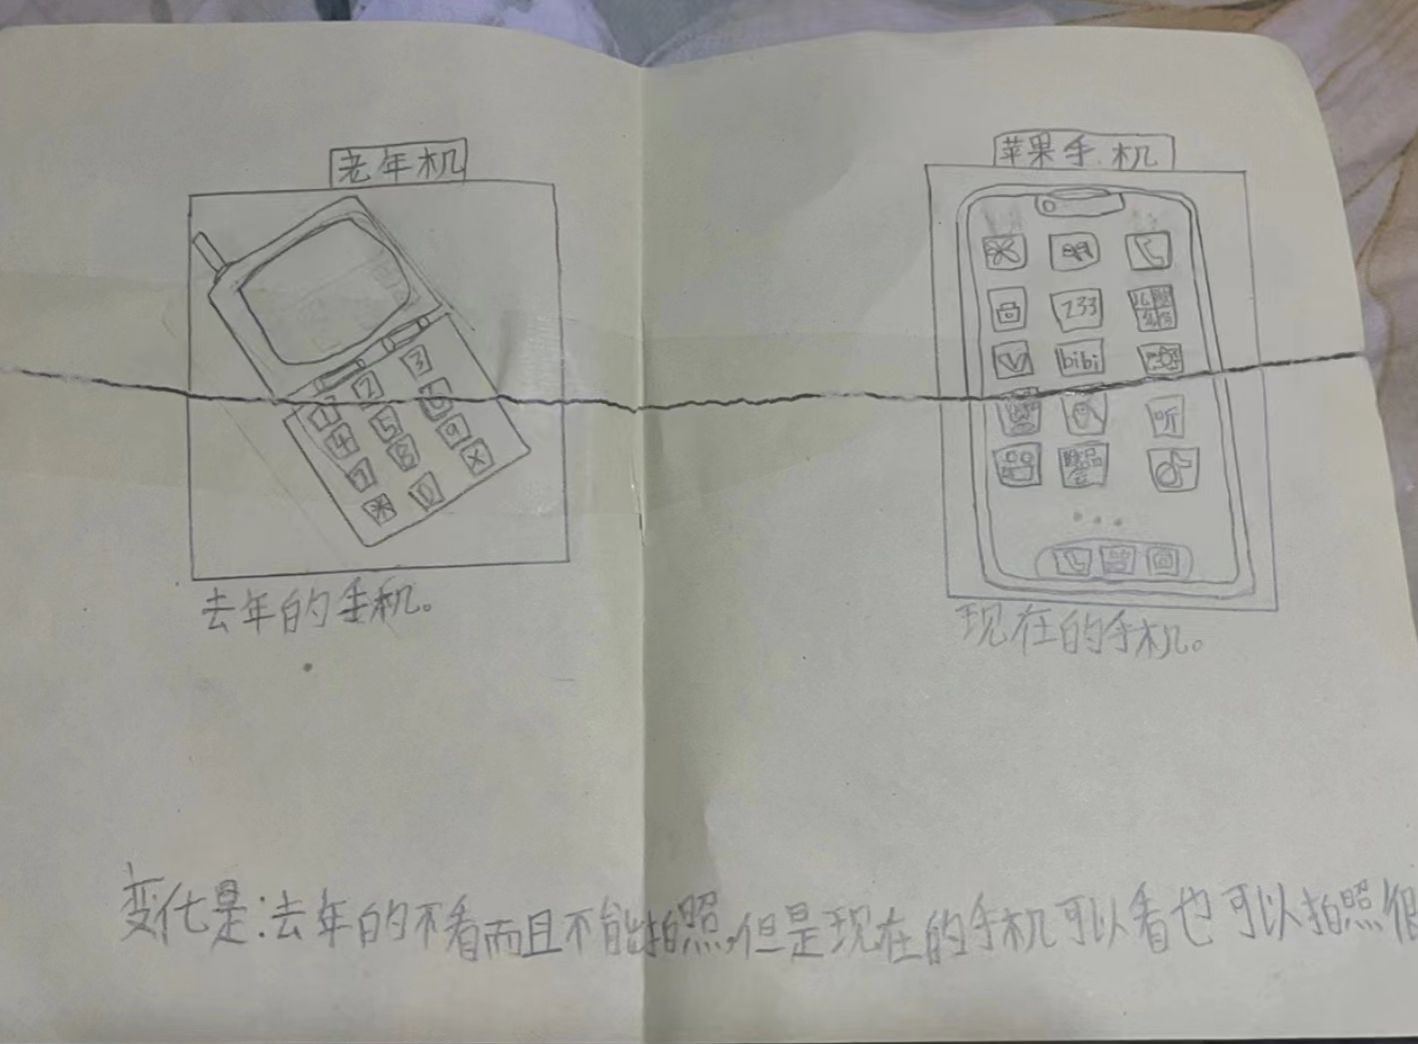 老年机
苹果手机
233
bibi
听
1 2 3
4 5 6
7 8 9 X
* 0
去年的手机。
现在的手机。
变化是:去年的不看而且不能拍照,但是现在的手机可以看也可以拍照很